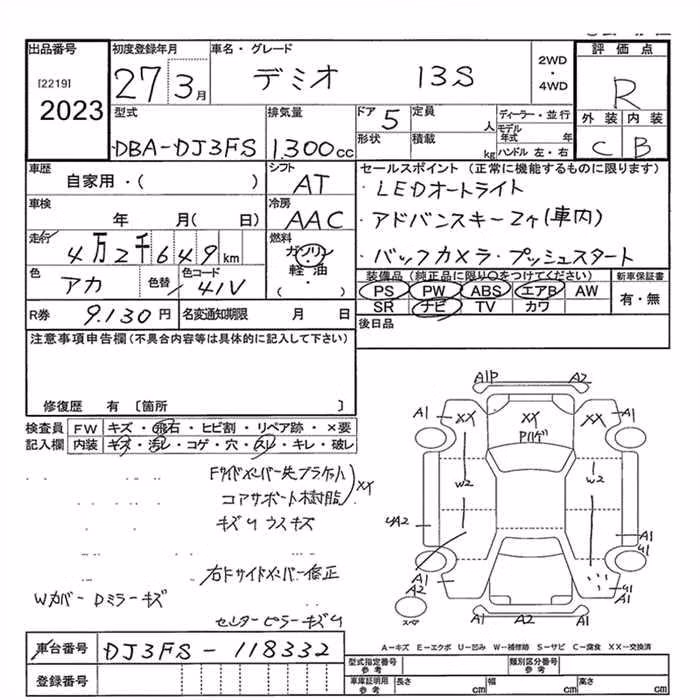 出品番号 初度登録年月 車名・グレード 2WD・4WD 評価点
[2219] 2023 27 3月 デミオ 13S R
型式 排気量 ドア 5 定員 人 ディーラー・並行 外装 内装
DBA-DJ3FS 1.300cc 形状 積載 kg モデル年式 年 ハンドル 左・右 C B
車歴 シフト セールスポイント (正常に機能するものに限ります)
自家用・( ) AT ・LEDオートライト
車検 冷房 ・アドバンスキー2ケ(車内)
年 月( 日) AAC
走行 4万2千649km 燃料 ガソリン ・バックカメラ・プッシュスタート
色 アカ 色替 色コード 41V 軽油 ( ・ )
装備品 (純正品に限り○をつけてください) 新車保証書
PS PW ABS エアB AW 有・無
SR ナビ TV カワ
R券 9.130円 名変通知期限 月 日 後日品
注意事項申告欄(不具合内容等は具体的に記入して下さい)
修復歴 有 〔箇所 〕
検査員記入欄 FW キズ・飛石・ヒビ割・リペア跡・×要
内装 キズ・汚レ・コゲ・穴・スレ・キレ・破レ
A1P A2
A1 XX XX XX A1
Pハゲ
W2 W2
4A2 A1
U1
A1 A2 A1 U1
スペア A1 A2 A1
コアサポート樹脂 XX
キズU ウスキズ
右Fサイドメンバー修正
Wカバー Dミラーキズ
センターピラーキズU
車台番号 DJ3FS-118332
A-キズ E-エクボ U-凹み W-補修跡 S-サビ C-腐食 XX-交換済
登録番号
型式指定番号 参考 類別区分番号 参考
車庫証明用 参考 長さ cm 幅 cm 高さ cm